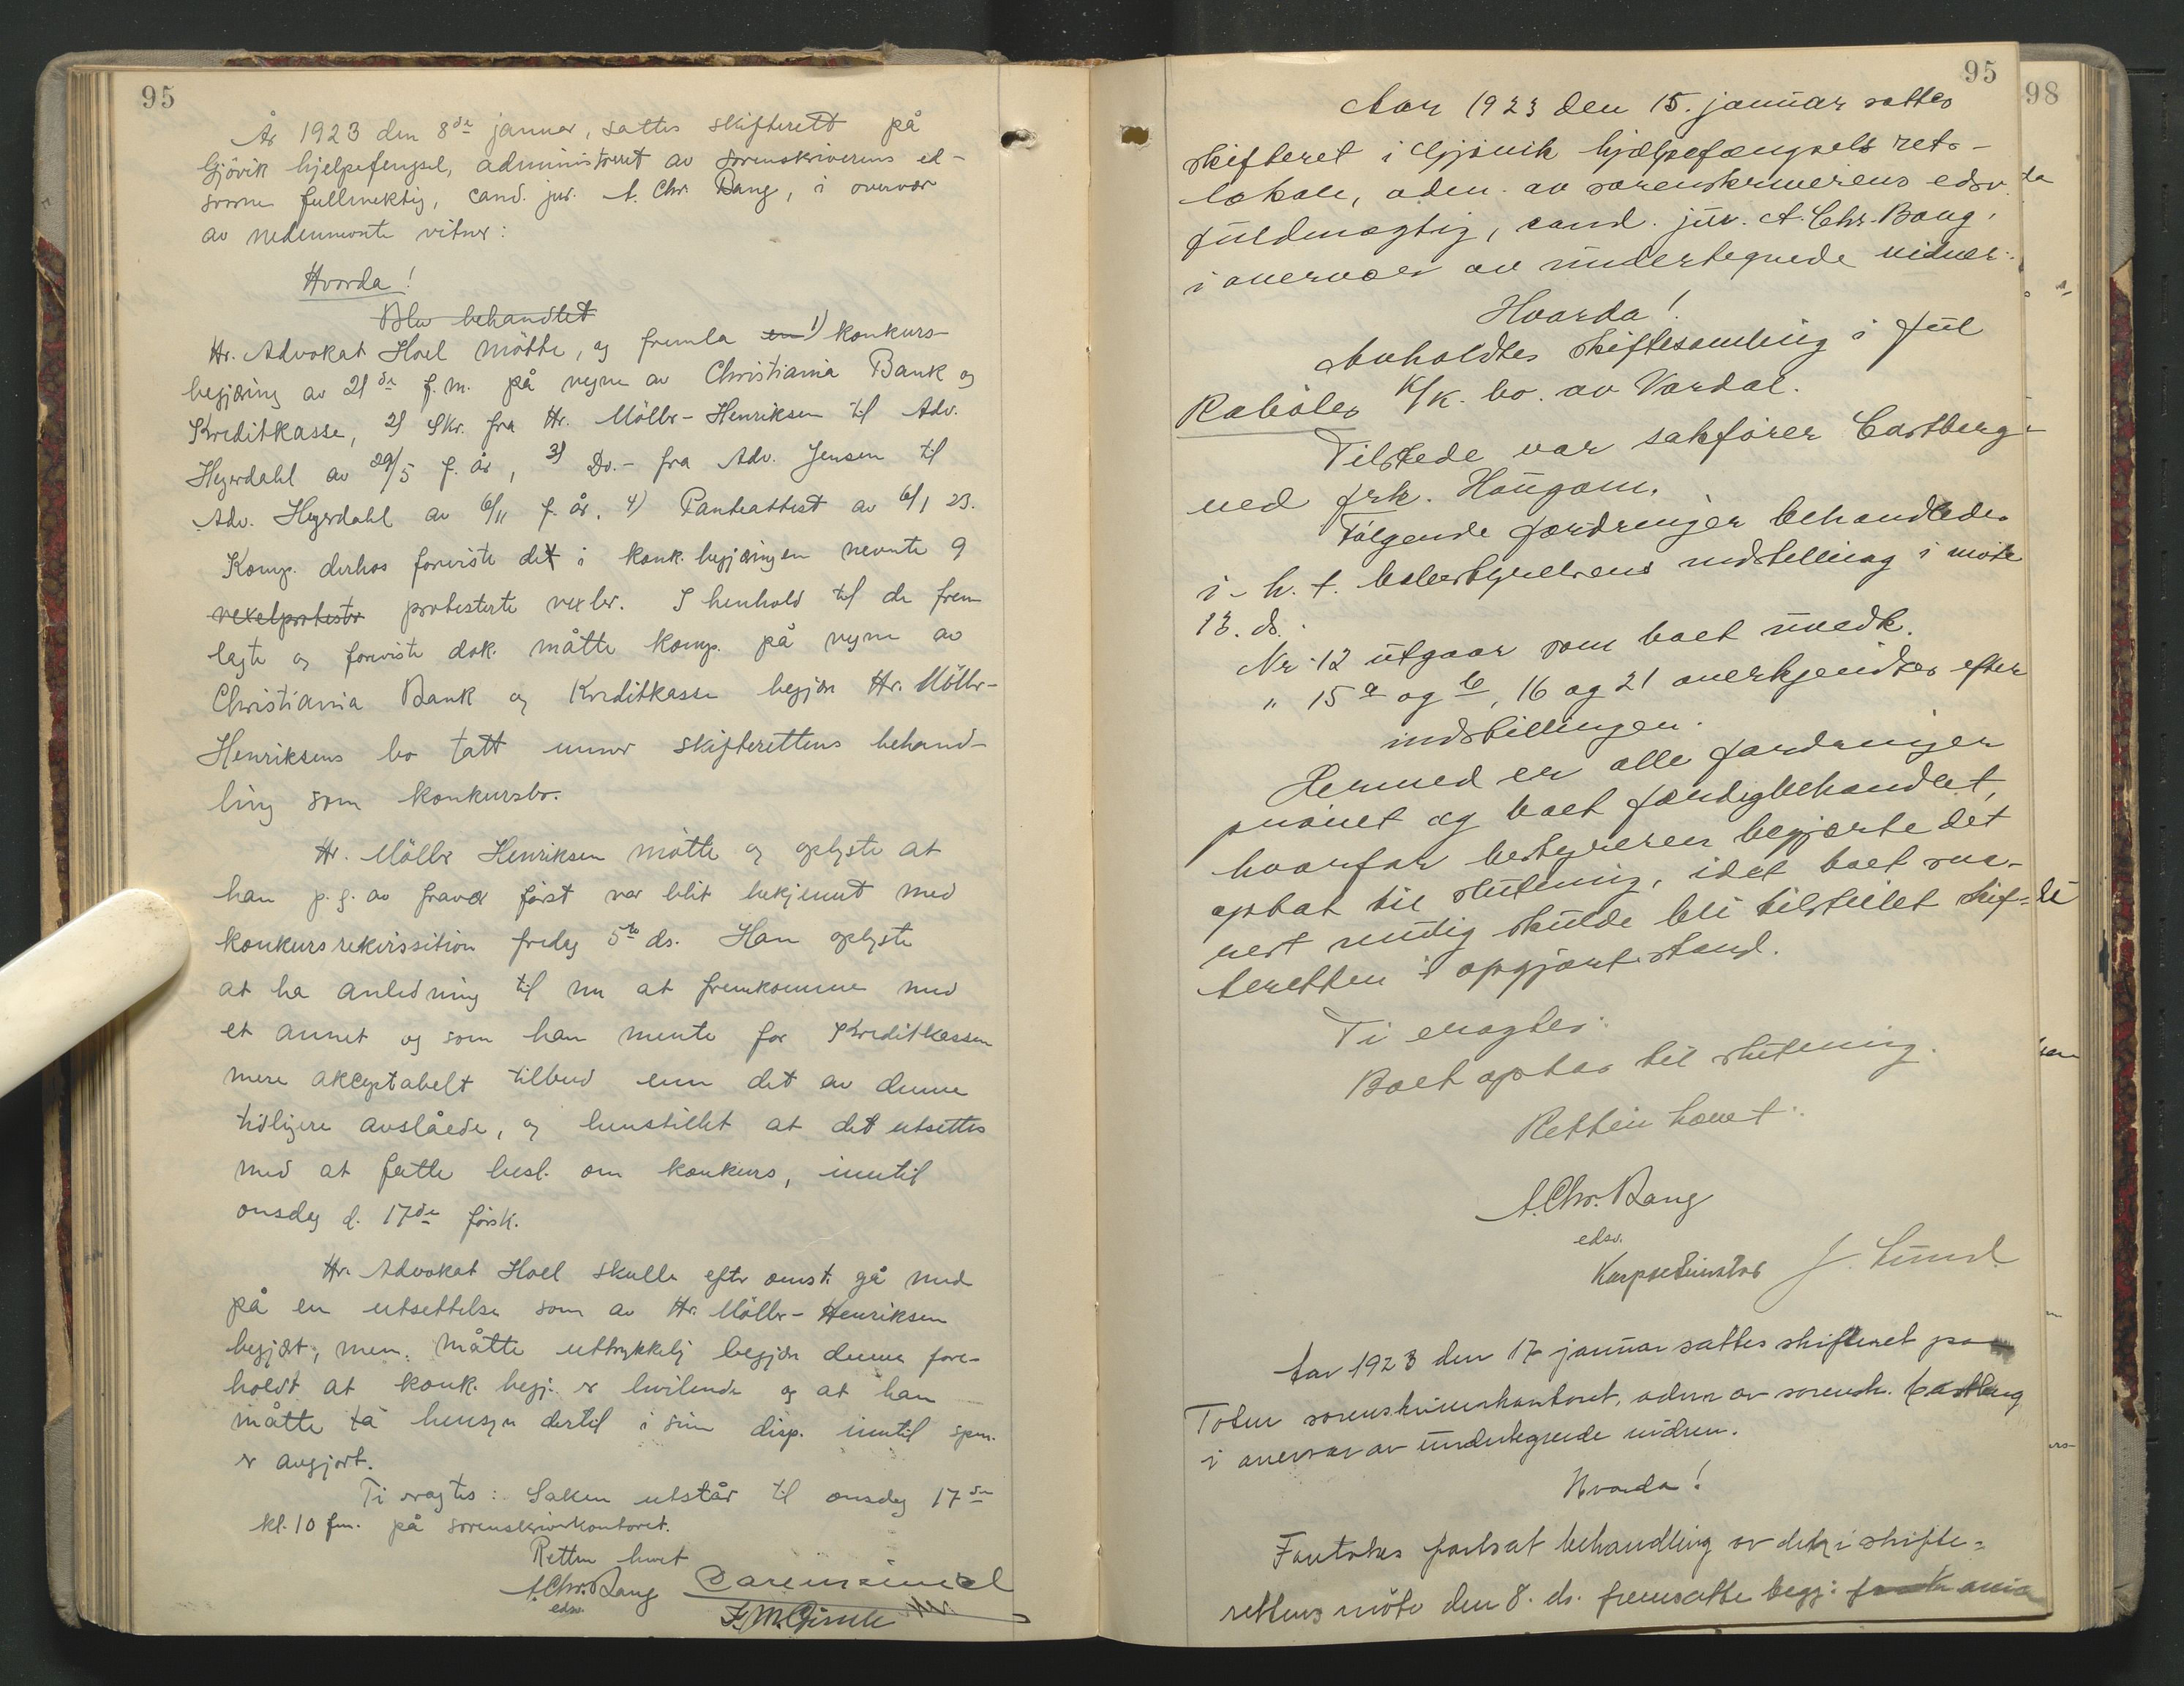 95
År 1923 den 8de januar, sattes skifterett på
Gjövik hjelpefengsel, administreret av sorenskriverens ed-
svorne fullmektig, cand. jur. A. Chr. Bang, i overvær
av nedennevnte vitner:
Hvorda!
Blev behandlet
Hr. Advokat Hoel mötte, og fremla en 1) konkurs-
begjæring av 21de f.m. på vegne av Christiania Bank og
Kreditkasse, 2) Skr. fra Hr. Möller-Henriksen til Adv.
Heyerdahl av 29/5 f. år, 3) Do.- fra Adv. Jensen til
Adv. Heyerdahl av 6/11 f. år, 4) Panteattest av 6/1 23.
Komp. derhos foreviste det i konk. begjæringen nevnte 9
vexelprotester protesterte vexler. I henhold til de frem
lagte og foreviste dok. måtte komp. på vegne av
Christiania Bank og Kreditkasse begjære Hr. Möller-
Henriksens bo tatt unner skifterettens behand-
ling som konkursbo.
Hr. Möller Henriksen mötte og oplyste at
han p.g. av fravær först var blit bekjennt med
konkursrekvisition fredag 5te ds. Han oplyste
at ha anledning til nu at fremkomme med
et annet og som han mente for Kreditkassen
mere akceptabelt tilbud enn det av denne
tidligere avslåede, og henstillet at det utsettes
med at fatte besl. om konkurs, inntil
onsdag d. 17de förstk.
Hr. Advokat Hoel skulle efter omst. gå med
på en utsettelse som av Hr. Möller-Henriksen
begjært, men måtte uttrykkelig begjære denne fore-
holdt at konk. begj. er hvilende og at han
måtte ta hensyn dertil i sin disp. inntil spm.
er avgjort.
Ti eragtes: Saken utstår til onsdag 17de
kl. 10 fm. på sorenskriverkontoret.
Retten hevet
A. Chr. Bang
edsv.
95
98
Aar 1923 den 15. januar sattes
skifteret i Gjövik hjælpefængsels rets-
lokale, adm. av sorenskriverens edsv.
fuldmægtig, cand. jur. A. Chr. Bang,
i overvær av undertegnede vidner:
Hvorda!
Avholdtes skiftesamling i Juel
Raböles K/K. bo. av Vardal.
Tilstede var sakförer Castberg
ved frk. Haugom.
Fölgende fordringer behandledes
i h. t. bobestyrelsens indstilling i möte
13. ds.:
Nr. 12 utgaar som boet uvedk.
" 15 a og b, 16 og 21 anerkjendtes efter
indstillingen.
Hermed er alle fordringer
prövet og boet færdigbehandlet,
hvorfor bestyreren begjærte det
optat til slutning, idet boet sna-
rest mulig skulde bli tilstillet skif-
teretten i opgjort stand.
Ti eragtes:
Boet optas til slutning.
Retten hævet:
A. Chr. Bang
edsv.
J. Lund
Aar 1923 den 17 januar sattes skifteret paa
Toten sorenskriverkontoret, adm av sorensk. Castberg
i overvær av undertegnede vidner.
Hvorda!
Foretokes fortsat behandling av det i skifte-
rettens möte den 8. ds. fremsatte begj: